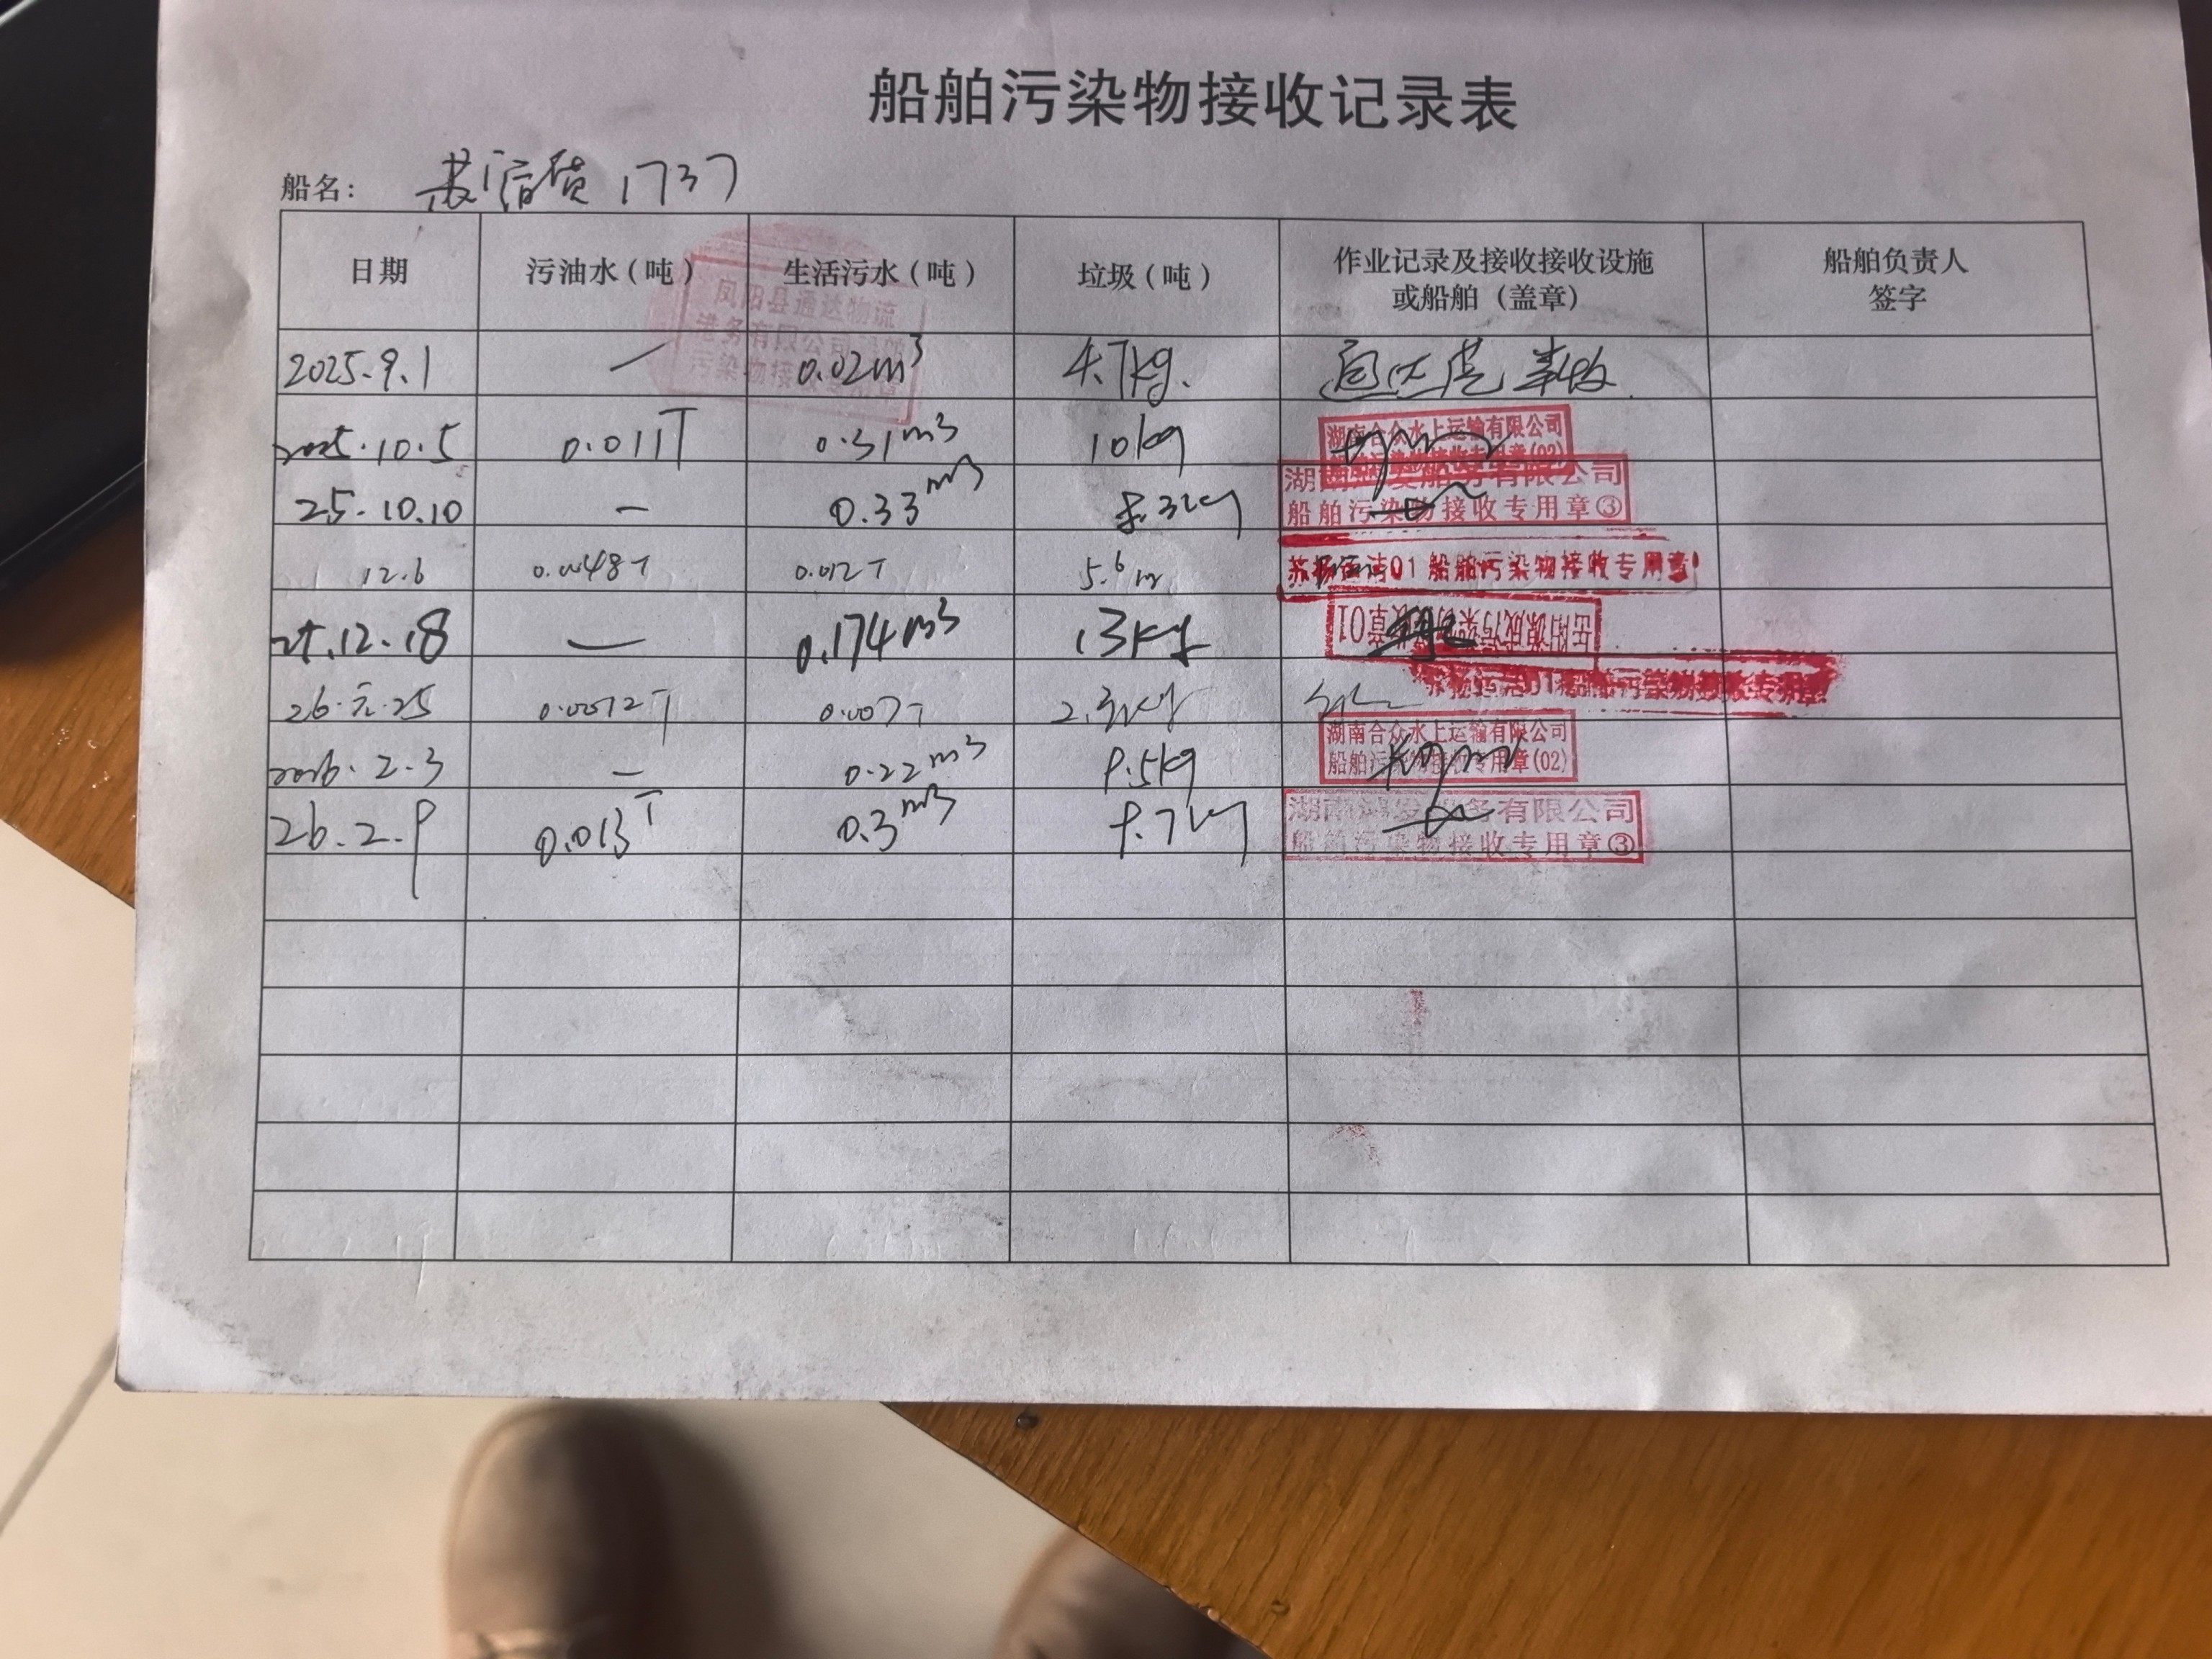 船舶污染物接收记录表
船名： 苏宿货1737
日期 污油水（吨） 生活污水（吨） 垃圾（吨） 作业记录及接收接收设施或船舶（盖章） 船舶负责人签字
凤阳县通达物流
港务有限公司船舶
污染物接收专用章
2025.9.1 — 0.02m³ 4.7kg. 通达港
2025.10.5 0.011T 0.31m³ 10kg
湖南合众水上运输有限公司
船舶污染物接收专用章(02)
25.10.10 — 0.33m³ 8.3kg
船务有限公司
船舶污染物接收专用章③
12.6 0.0048T 0.012T 5.6
01船舶污染物接收专用章
25.12.18 — 0.174m³ 13kg
岳阳 01
26.元.25 0.0072T 0.007T 2.3kg
01船舶污染物接收专用章
2026.2.3 — 0.22m³ 9.5kg
湖南合众水上运输有限公司
船舶污染物接收专用章(02)
26.2.9 0.013T 0.3m³ 9.7kg
湖南 船务有限公司
船舶污染物接收专用章③